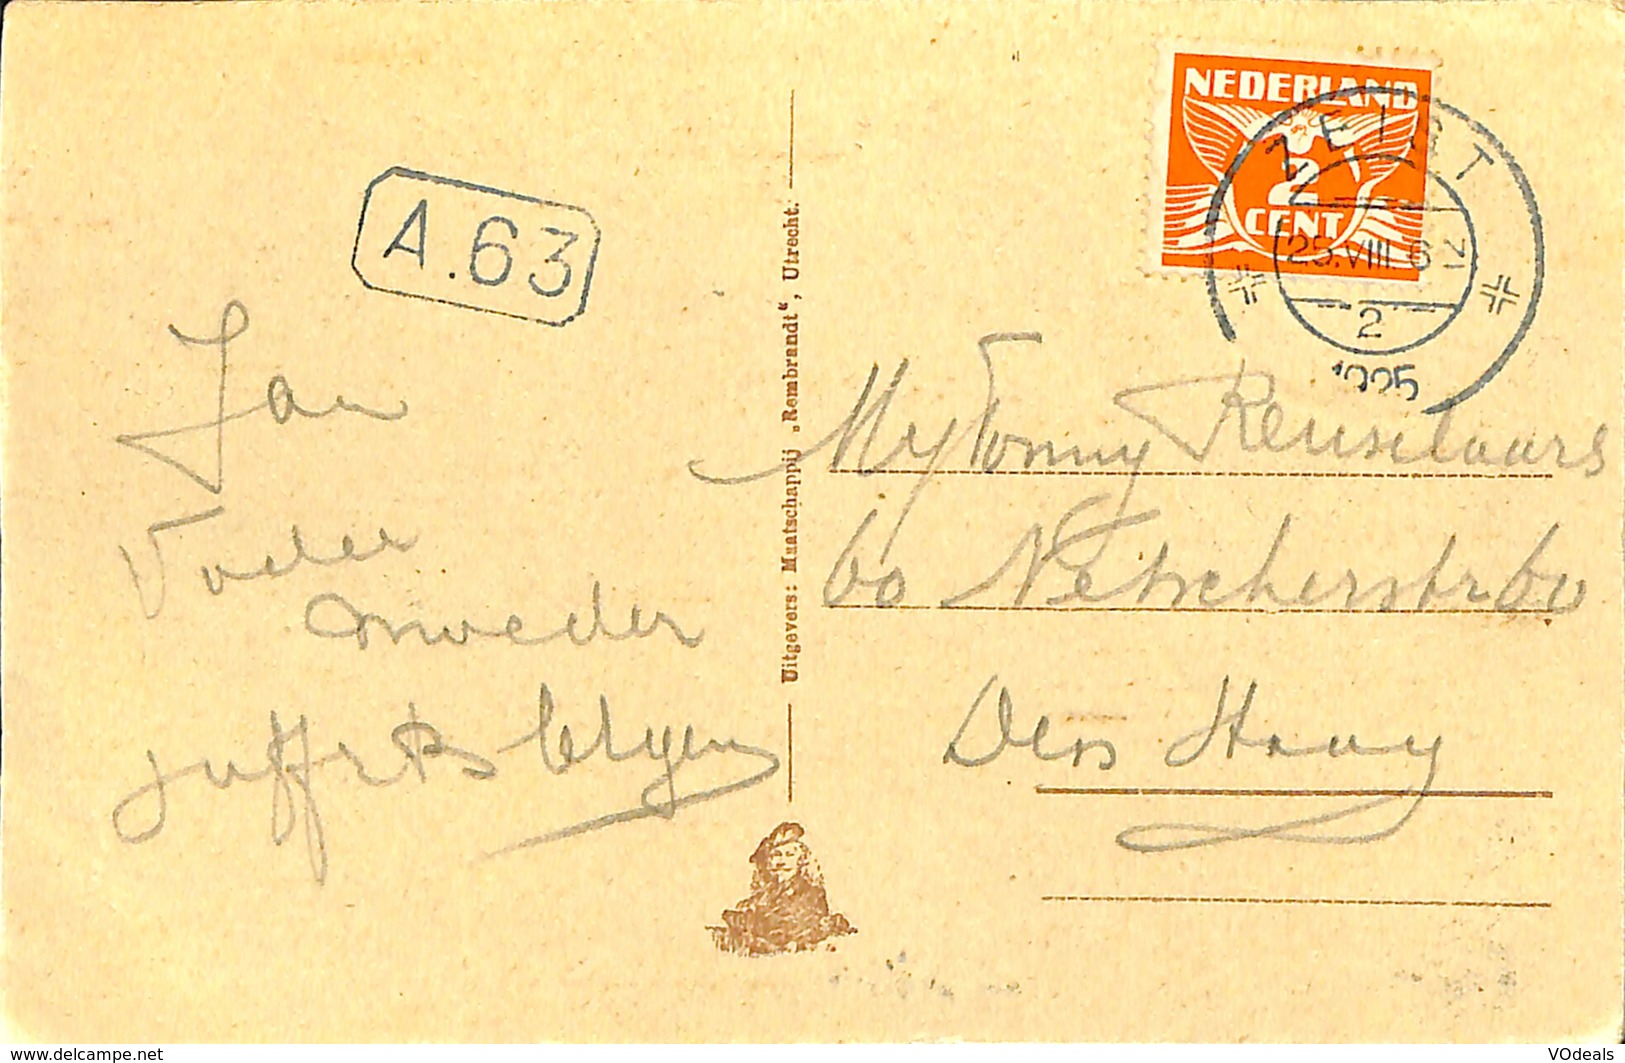 NEDERLAND
2
CENT
ZEIST
25.VIII.6
2
A.63
Jan
Vader
moeder
Uitgevers: Maatschappij „Rembrandt“, Utrecht.
Tonny Renselaars
60 Netscherstr 60
Den Haag
www.delcampe.net
VOdeals